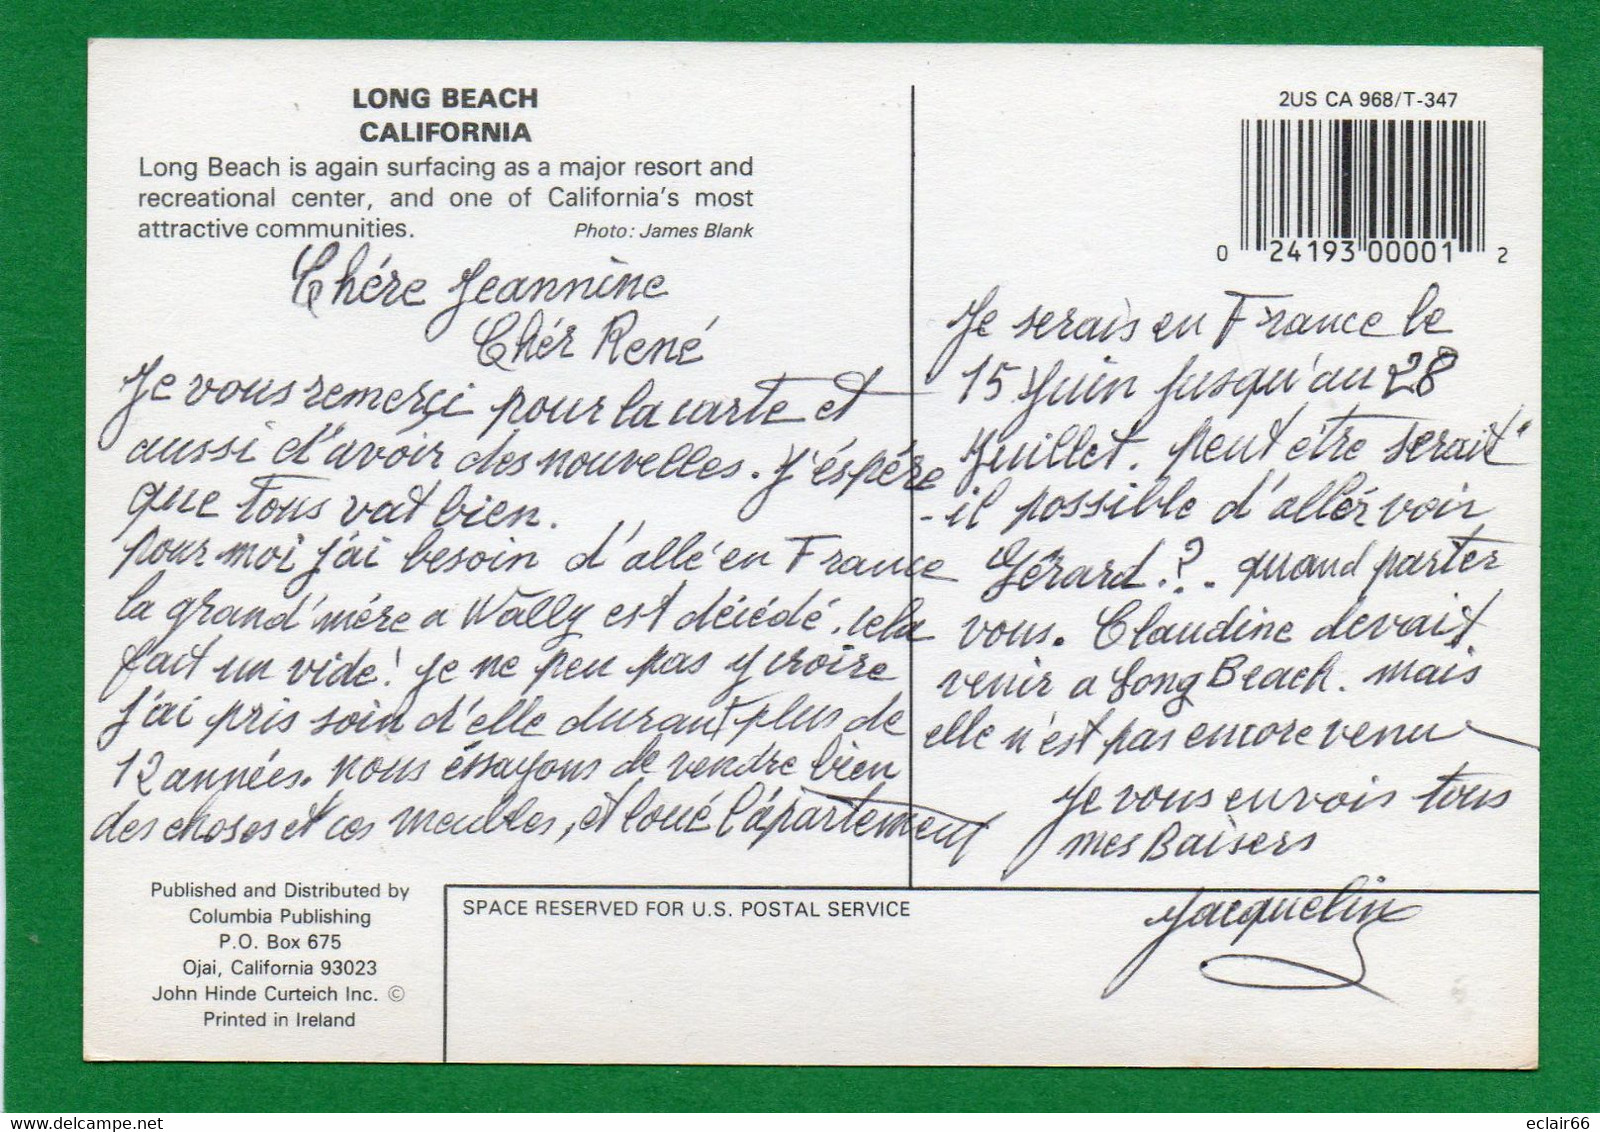 LONG BEACH
CALIFORNIA
Long Beach is again surfacing as a major resort and
recreational center, and one of California's most
attractive communities.
Photo: James Blank
Chére Jeannine
Chér René
Je vous remerçi pour la carte et
aussi d'avoir des nouvelles. J'éspére
que Tous vat bien.
pour moi j'ai besoin d'allé en France
la grand'mére a Wally est décédé. cela
fait un vide! je ne peu pas y croire
j'ai pris soin d'elle durant plus de
12 années. nous éssayons de vendre bien
des choses et ces meubles, et loué l'ápartement
2US CA 968/T-347
0 24193 00001 2
Je serais en France le
15 Juin jusqu'au 28
Juillet. peut être serait
-il possible d'allér voir
Gérard.?. quand parter
vous. Claudine devait
venir a Long Beach. mais
elle n'est pas encore venu
Je vous envois tous
mes Baisers
Jacqueline
Published and Distributed by
Columbia Publishing
P.O. Box 675
Ojai, California 93023
John Hinde Curteich Inc. ©
Printed in Ireland
SPACE RESERVED FOR U.S. POSTAL SERVICE
www.delcampe.net
eclair66